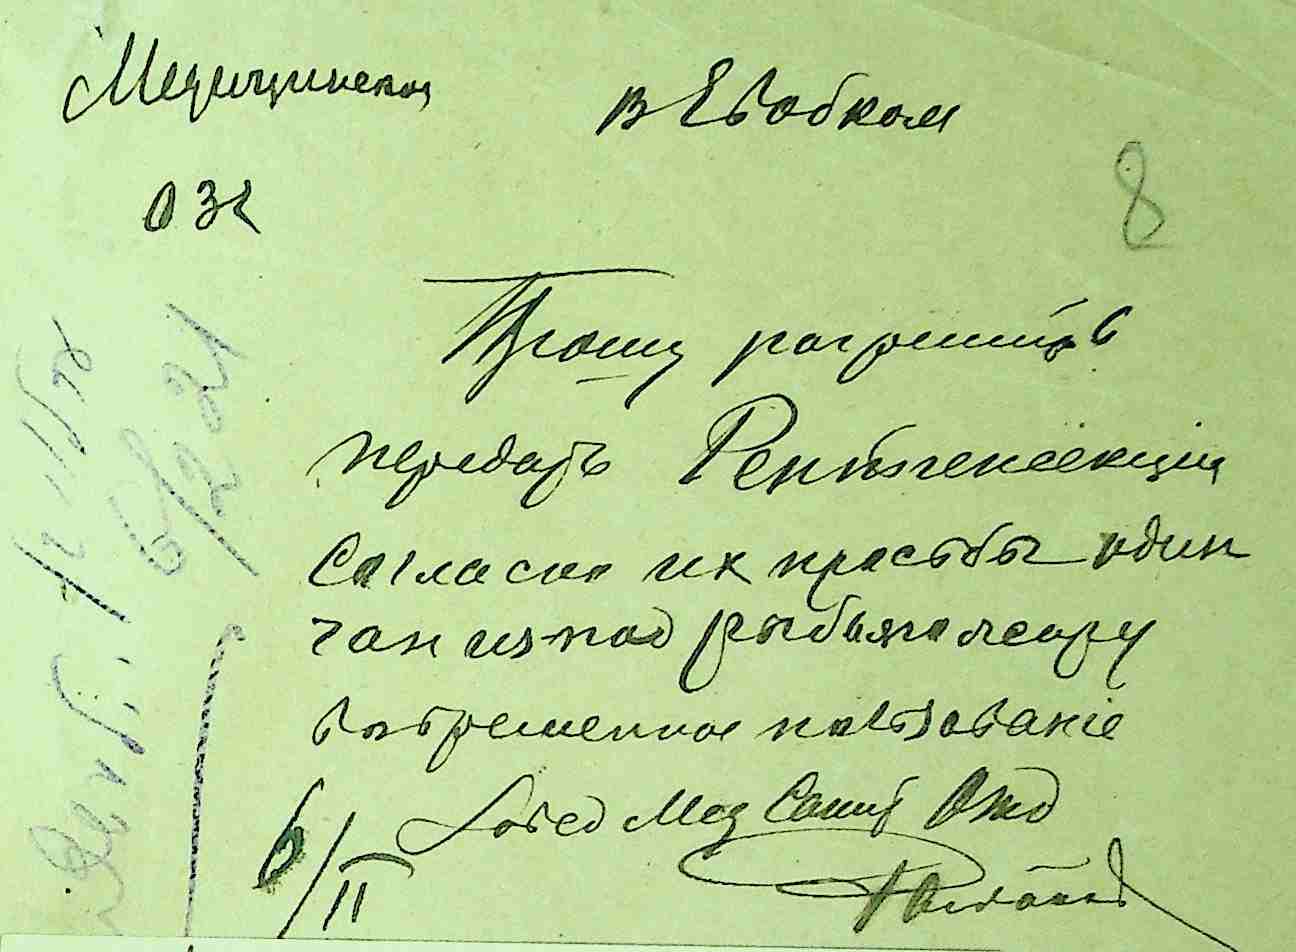 Медицинская
в Евобком
032
8
Прошу разрешить
передать Рентгенсекции
согласно их просьбы один
чан из под рыбьяго жару
во временное пользованіе
Завед Мед Санит Отд
6/II
6/2 21